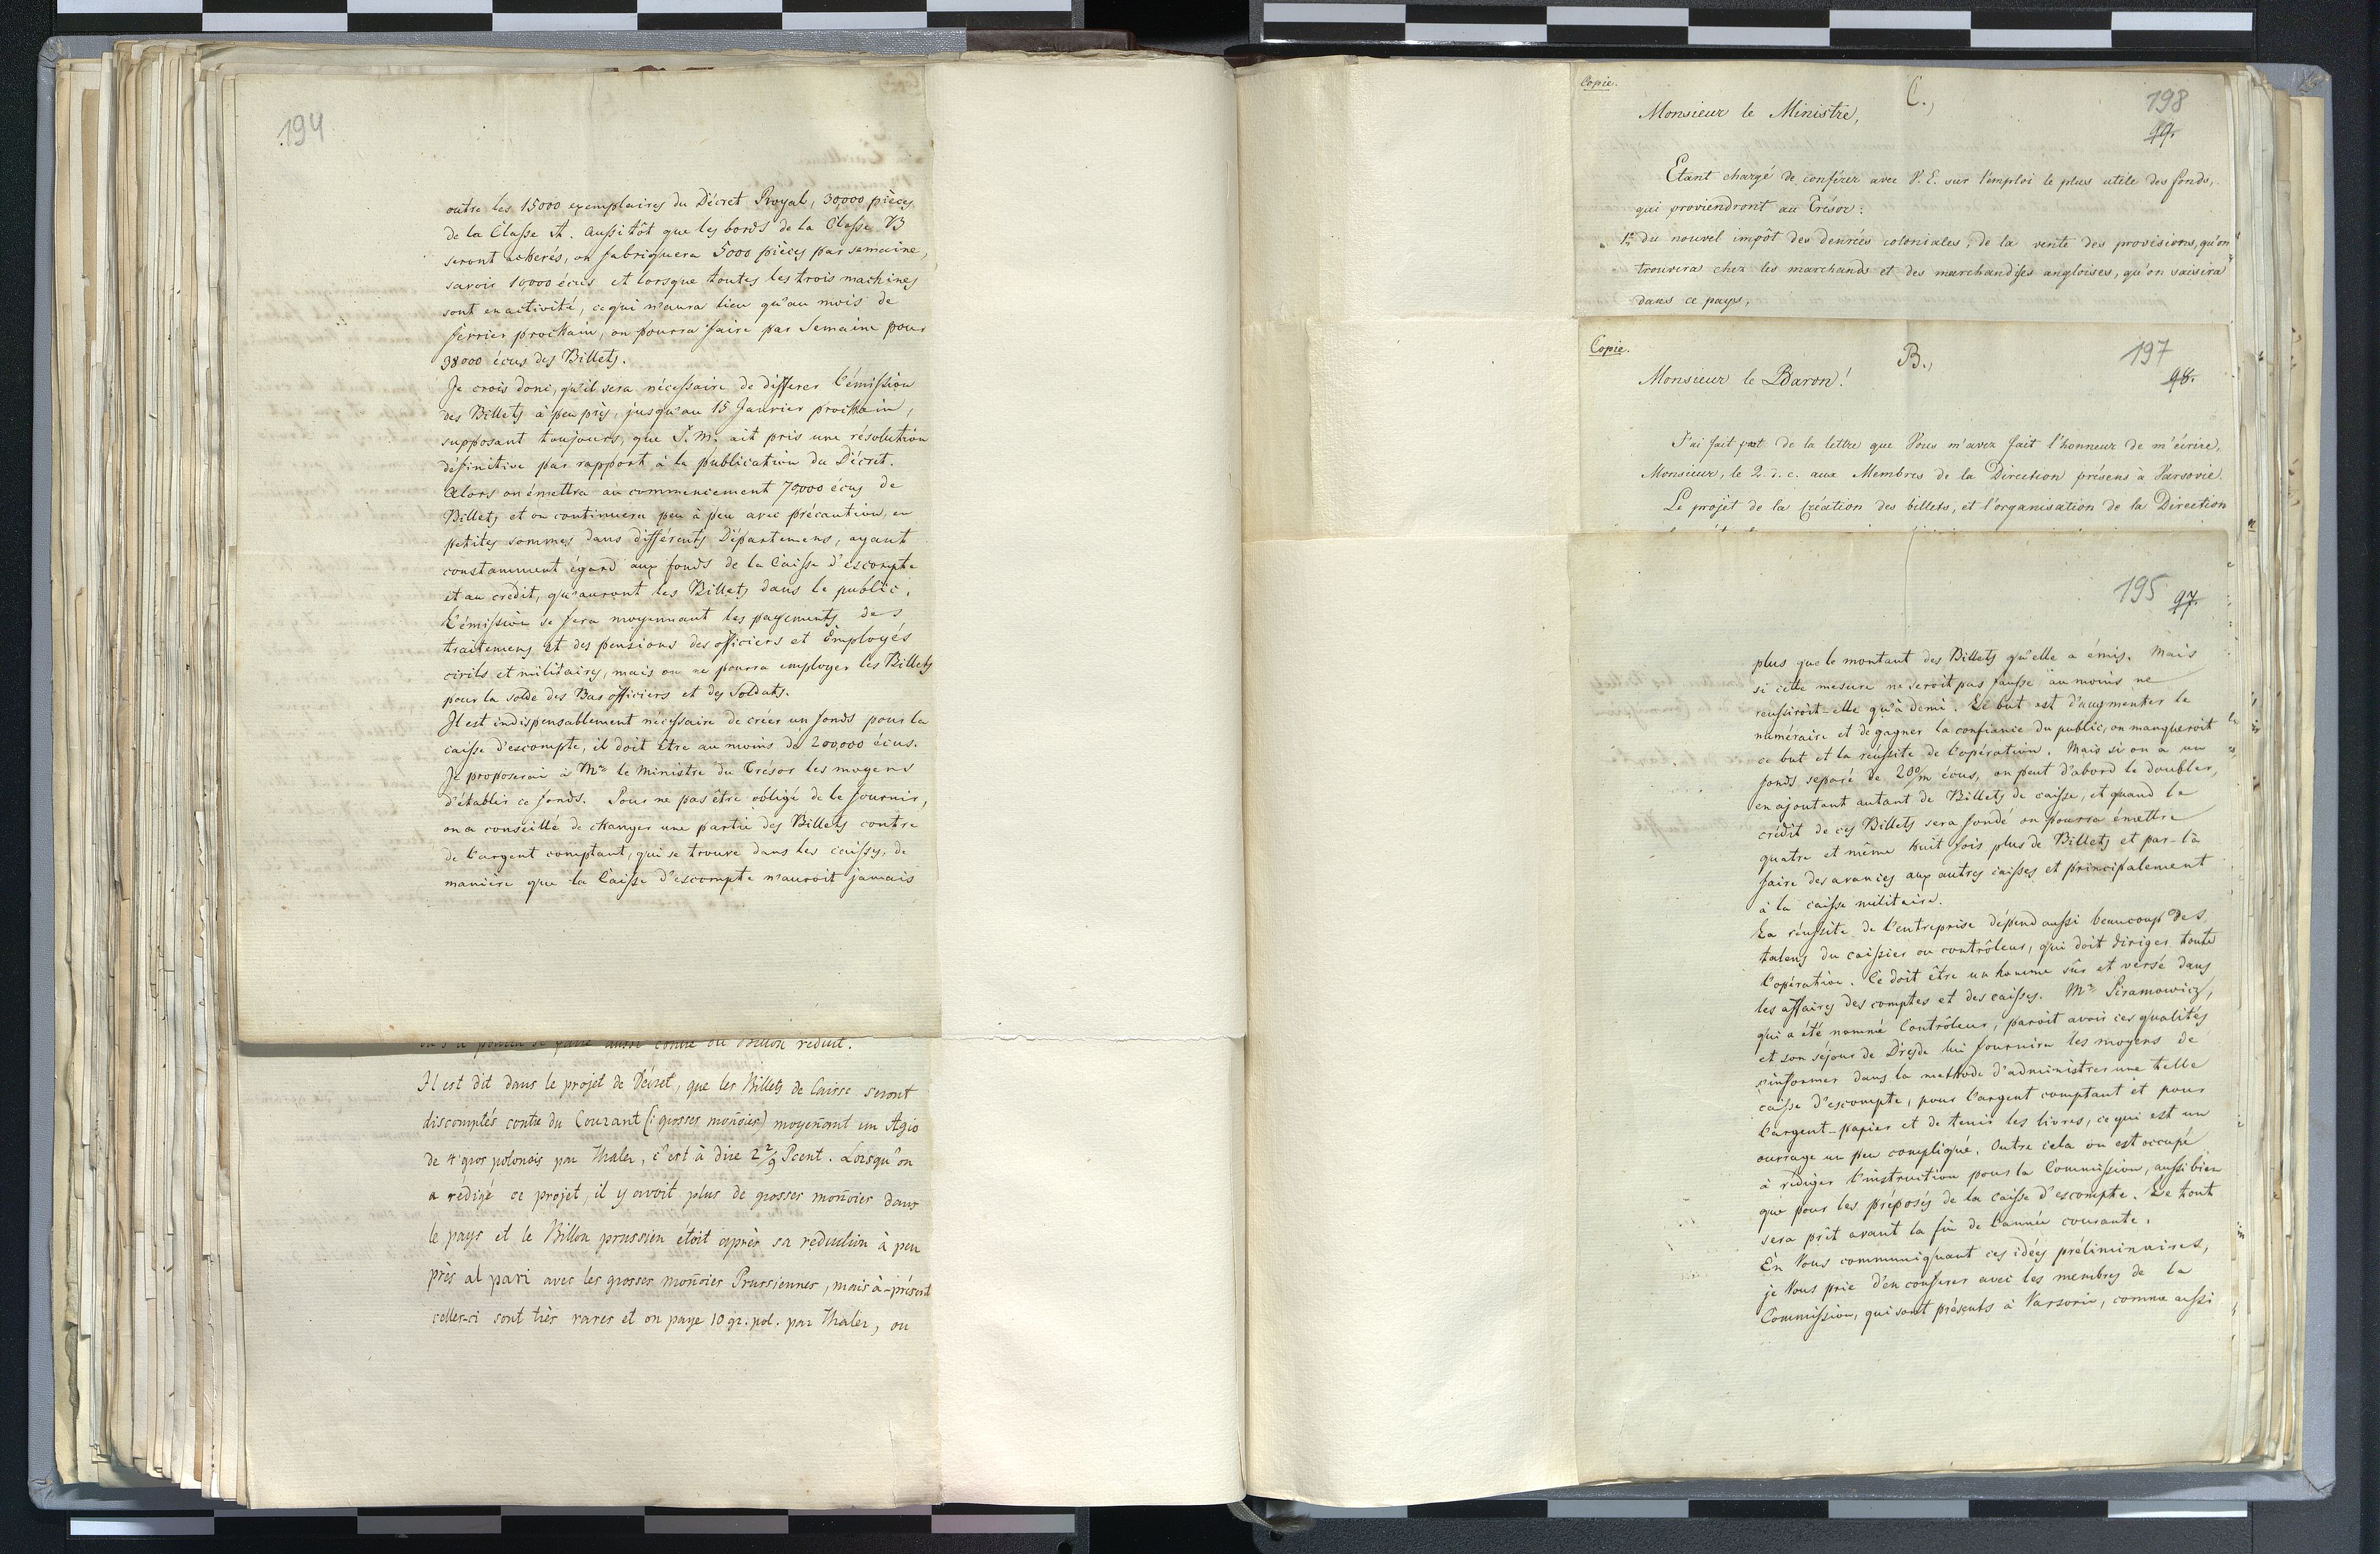 194
outre les 15000 exemplaires du Décret Royal, 30,000 pièces
de la Classe A. Aussitôt que les bords de la Classe B
seront achevés, on fabriquera 5000 pièces par semaine,
savoir 10,000 écus et lorsque toutes les trois machines
sont en activité, ce qui n'aura lieu qu'au mois de
fevrier prochain, on pourra faire par Semaine pour
38000 écus des Billets.
Je crois donc, qu'il sera nécessaire de differer l'émission
des Billets à peu près, jusqu'au 15 Janvier prochain,
supposant toujours, que S. M. ait pris une résolution
définitive par rapport à la publication du Décret.
Alors on émettra au commencement 70,000 écus de
Billets et on continuera peu à peu avec précaution, en
petites sommes dans différents Départemens, ayant
constamment égard aux fonds de la Caisse d'escompte
et au crédit, qu'auront les Billets dans le public.
L'émission se fera moyennant les payements des
traitemens et des pensions des officiers et Employés
civils et militaires, mais on ne pourra employer les Billets
pour la solde des Bas officiers et des Soldats.
Il est indispensablement necessaire de créer un fonds pour la
caisse d'escompte, il doit être au moins de 200,000 écus.
Je proposerai à Mr. le Ministre du Trésor les moyens
d'établir ce fonds. Pour ne pas être obligé de le fournir,
on a conseillé de changer une partie des Billets contre
de l'argent comptant, qui se trouve dans les caisses, de
manière que la Caisse d'escompte n'auroit jamais
reduit.
Il est dit dans le projet de Décret, que les Billets de Caisse seront
discomptés contre du Courant (: grosses monoies) moyenant un Agio
de 4 gros polonois par Thaler, c'est à dire 2 2/9 Pcent. Lorsqu'on
a rédigé ce projet, il y avoit plus de grosses monoies dans
le pays et le Billon prussien étoit après sa reduction à peu
près al pari avec les grosses monoies Prussiennes, mais à-présent
celles-ci sont très rares et on paye 10 gr. pol. par Thaler, ou
Copie.
C.,
198
99.
Monsieur le Ministre,
Etant chargé de conférer avec V. E. sur l'emploi le plus utile des fonds,
qui proviendront au Trésor:
1° du nouvel impôt des denrées coloniales, de la vente des provisions, qu'on
trouvera chez les marchands et des marchandises angloises, qu'on saisira
dans ce pays,
Copie.
B.,
197
98.
Monsieur le Baron!
J'ai fait part de la lettre que Vous m'avez fait l'honneur de m'écrire,
Monsieur, le 2. d. c. aux Membres de la Direction présens à Varsovie.
Le projet de la Création des billets, et l'organisation de la Direction
195
97.
plus que le montant des Billets qu'elle a émis. Mais
si cette mesure ne seroit pas fausse au moins ne
reussiroit-elle qu'à demi. Le but est d'augmenter le
numéraire et de gagner la confiance du public, on manqueroit
ce but et la réussite de l'opération. Mais si on a un
fonds separé de 200/m écus, on peut d'abord le doubler,
en ajoutant autant de Billets de caisse, et quand le
crédit de ces Billets sera fondé on pourra émettre
quatre et même huit fois plus de Billets et par-là
faire des avances aux autres caisses et principalement
à la caisse militaire.
La réussite de l'entreprise dépend aussi beaucoup des
talens du caissier ou contrôleur, qui doit diriger toute
l'opération. Ce doit être un homme sûr et versé dans
les affaires des comptes et des caisses. Mr. Piramowicz,
qui a été nommé Contrôleur, paroit avoir ces qualités
et son séjour de Dresde lui fournira les moyens de
s'informer dans la methode d'administrer une telle
caisse d'escompte, pour l'argent comptant et pour
l'argent-papier et de tenir les livres, ce qui est un
ouvrage un peu compliqué. Outre cela on est occupé
à rediger l'instruction pour la Commission, aussi bien
que pour les préposés de la caisse d'escompte. Le tout
sera prêt avant la fin de l'année courante.
En Vous communiquant ces idées préliminaires,
je Vous prie d'en conférer avec les membres de la
Commission, qui sont présents à Varsovie, comme aussi